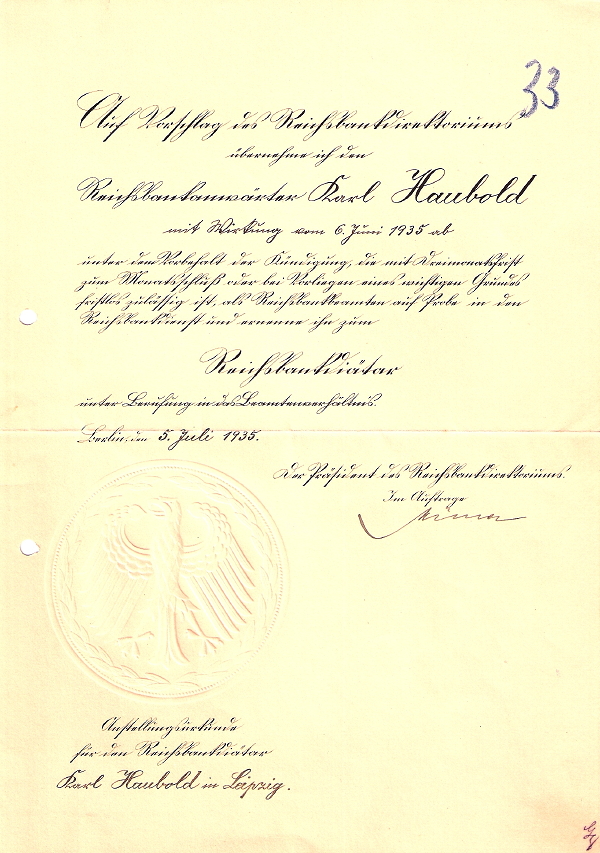 33
Auf Vorschlag des Reichsbankdirektoriums
übernehme ich den
Reichsbankanwärter Karl Haubold
mit Wirkung vom 6. Juni 1935 ab
unter dem Vorbehalt der Kündigung, die mit Dreimonatsfrist
zum Monatsschluß oder bei Vorliegen eines wichtigen Grundes
fristlos zulässig ist, als Reichsbankbeamten auf Probe in den
Reichsbankdienst und ernenne ihn zum
Reichsbankdiätar
unter Berufung in das Beamtenverhältnis.
Berlin, den 5. Juli 1935.
Der Präsident des Reichsbankdirektoriums.
Im Auftrage
Anstellungsurkunde
für den Reichsbankdiätar
Karl Haubold in Leipzig.